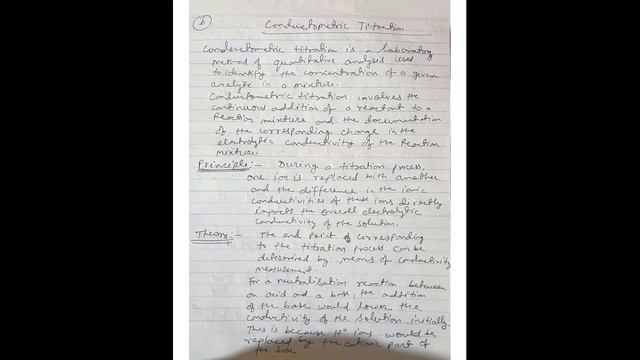 6
Conductometric Titration
Conductometric titration is a laboratory
method of quantitative analysis used
to identify the concentration of a given
analyte in a mixture.
Conductometric titration involves the
continuous addition of a reactant to a
Reaction mixture and the documentation
of the corresponding change in the
electrolytic conductivity of the Reaction
mixture.
Principle:- During a titration process,
one ion is replaced with another
and the difference in the ionic
conductivities of these ions directly
impacts the overall electrolytic
conductivity of the solution.
Theory:- The end point of corresponding
to the titration process can be
determined by means of conductivity
measurement.
For a neutralisation reaction between
an acid and a base, the addition
of the base would lower the
conductivity of the solution initially.
This is because H+ ions would be
replaced by the cationic part of
the base.